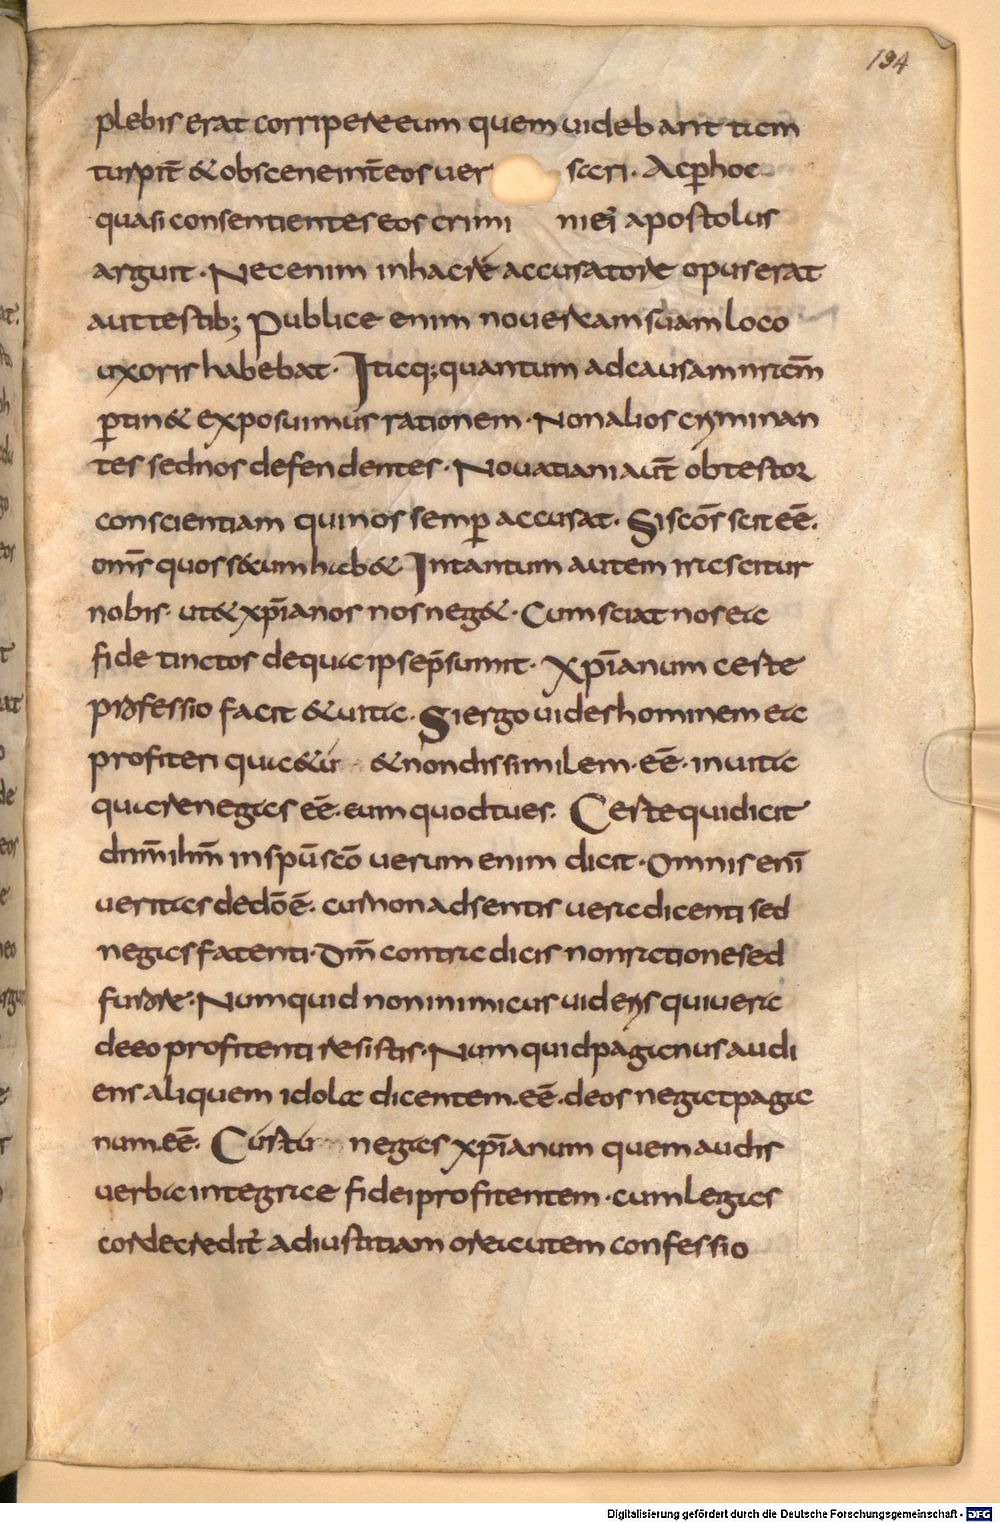 194
plebis erat corripere eum quem videbant tam
turpit̄ & obscene int̄ eos ver sari. Ac p̱ hoc
quasi consentientes eos crimi ni ei apostolus
arguit. Nec enim in hac re accusatore opus erat
aut testib; Publice enim novercam suam loco
uxoris habebat. Itaq; quantum ad causam nr̄am
p̱tin& exposuimus rationem. Non alios criminan
tes sed nos defendentes. Novatiani aut̄ obtestor
conscientiam qui nos semp̱ accusat. Si scōs scit eē.
om̄s quos secum hab&. In tantum autem irascitur
nobis. ut & xp̄ianos nos neg&. Cum sciat nos ea
fide tinctos de qua ipse p̄sumit. Xp̄ianum certe
professio facit & vita. Si ergo vides hominem ea
profiteri quae & tu & non dissimilem. eē. in vita
quare negas eē. eum quod tu es. Certe qui dicit
dn̄m ih̄m in spū scō verum enim dicit. Omnis enī
veritas de dō ē. cur non adsentis vera dicenti sed
negas fatenti. Dn̄m contra dicis non ratione sed
furore. Numquid non inimicus videris qui vera
de eo profitenti resistis. Num quid paganus audi
ens aliquem idola dicentem. eē. deos negat paga
num. eē. Cur tu negas xp̄ianum quem audis
verba integrae fidei profitentem. cum legas
corde credit̄ ad iustitiam ore autem confessio
Digitalisierung gefördert durch die Deutsche Forschungsgemeinschaft - DFG